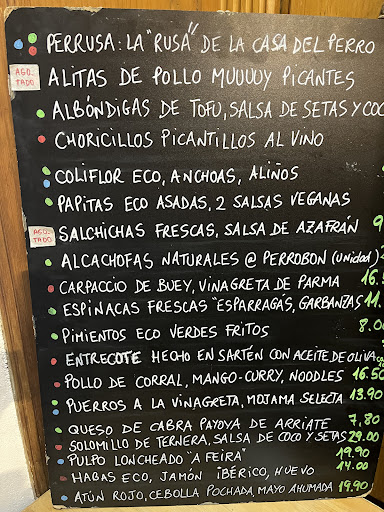 PERRUSA: LA "RUSA" DE LA CASA DEL PERRO
AGO-
TADO
ALITAS DE POLLO MUUUUY PICANTES
ALBÓNDIGAS DE TOFU, SALSA DE SETAS Y COC
CHORICILLOS PICANTILLOS AL VINO
COLIFLOR ECO, ANCHOAS, ALIÑOS
PAPITAS ECO ASADAS, 2 SALSAS VEGANAS
AGO-
TADO
SALCHICHAS FRESCAS, SALSA DE AZAFRÁN 9
ALCACHOFAS NATURALES @ PERROBON (unidad)
CARPACCIO DE BUEY, VINAGRETA DE PARMA 16.
ESPINACAS FRESCAS "ESPARRAGÁS", GARBANZAS 11.
PIMIENTOS ECO VERDES FRITOS 8.0
ENTRECOTE HECHO EN SARTÉN CON ACEITE DE OLIVA
POLLO DE CORRAL, MANGO-CURRY, NOODLES 16.50
PUERROS A LA VINAGRETA, MOJAMA SELECTA 13.90
QUESO DE CABRA PAYOYA DE ARRIATE 7,80
SOLOMILLO DE TERNERA, SALSA DE COCO Y SETAS 29.00
PULPO LONCHEADO "A FEIRA" 19.90
HABAS ECO, JAMÓN IBÉRICO, HUEVO 14.00
ATÚN ROJO, CEBOLLA POCHADA, MAYO AHUMADA 19.90